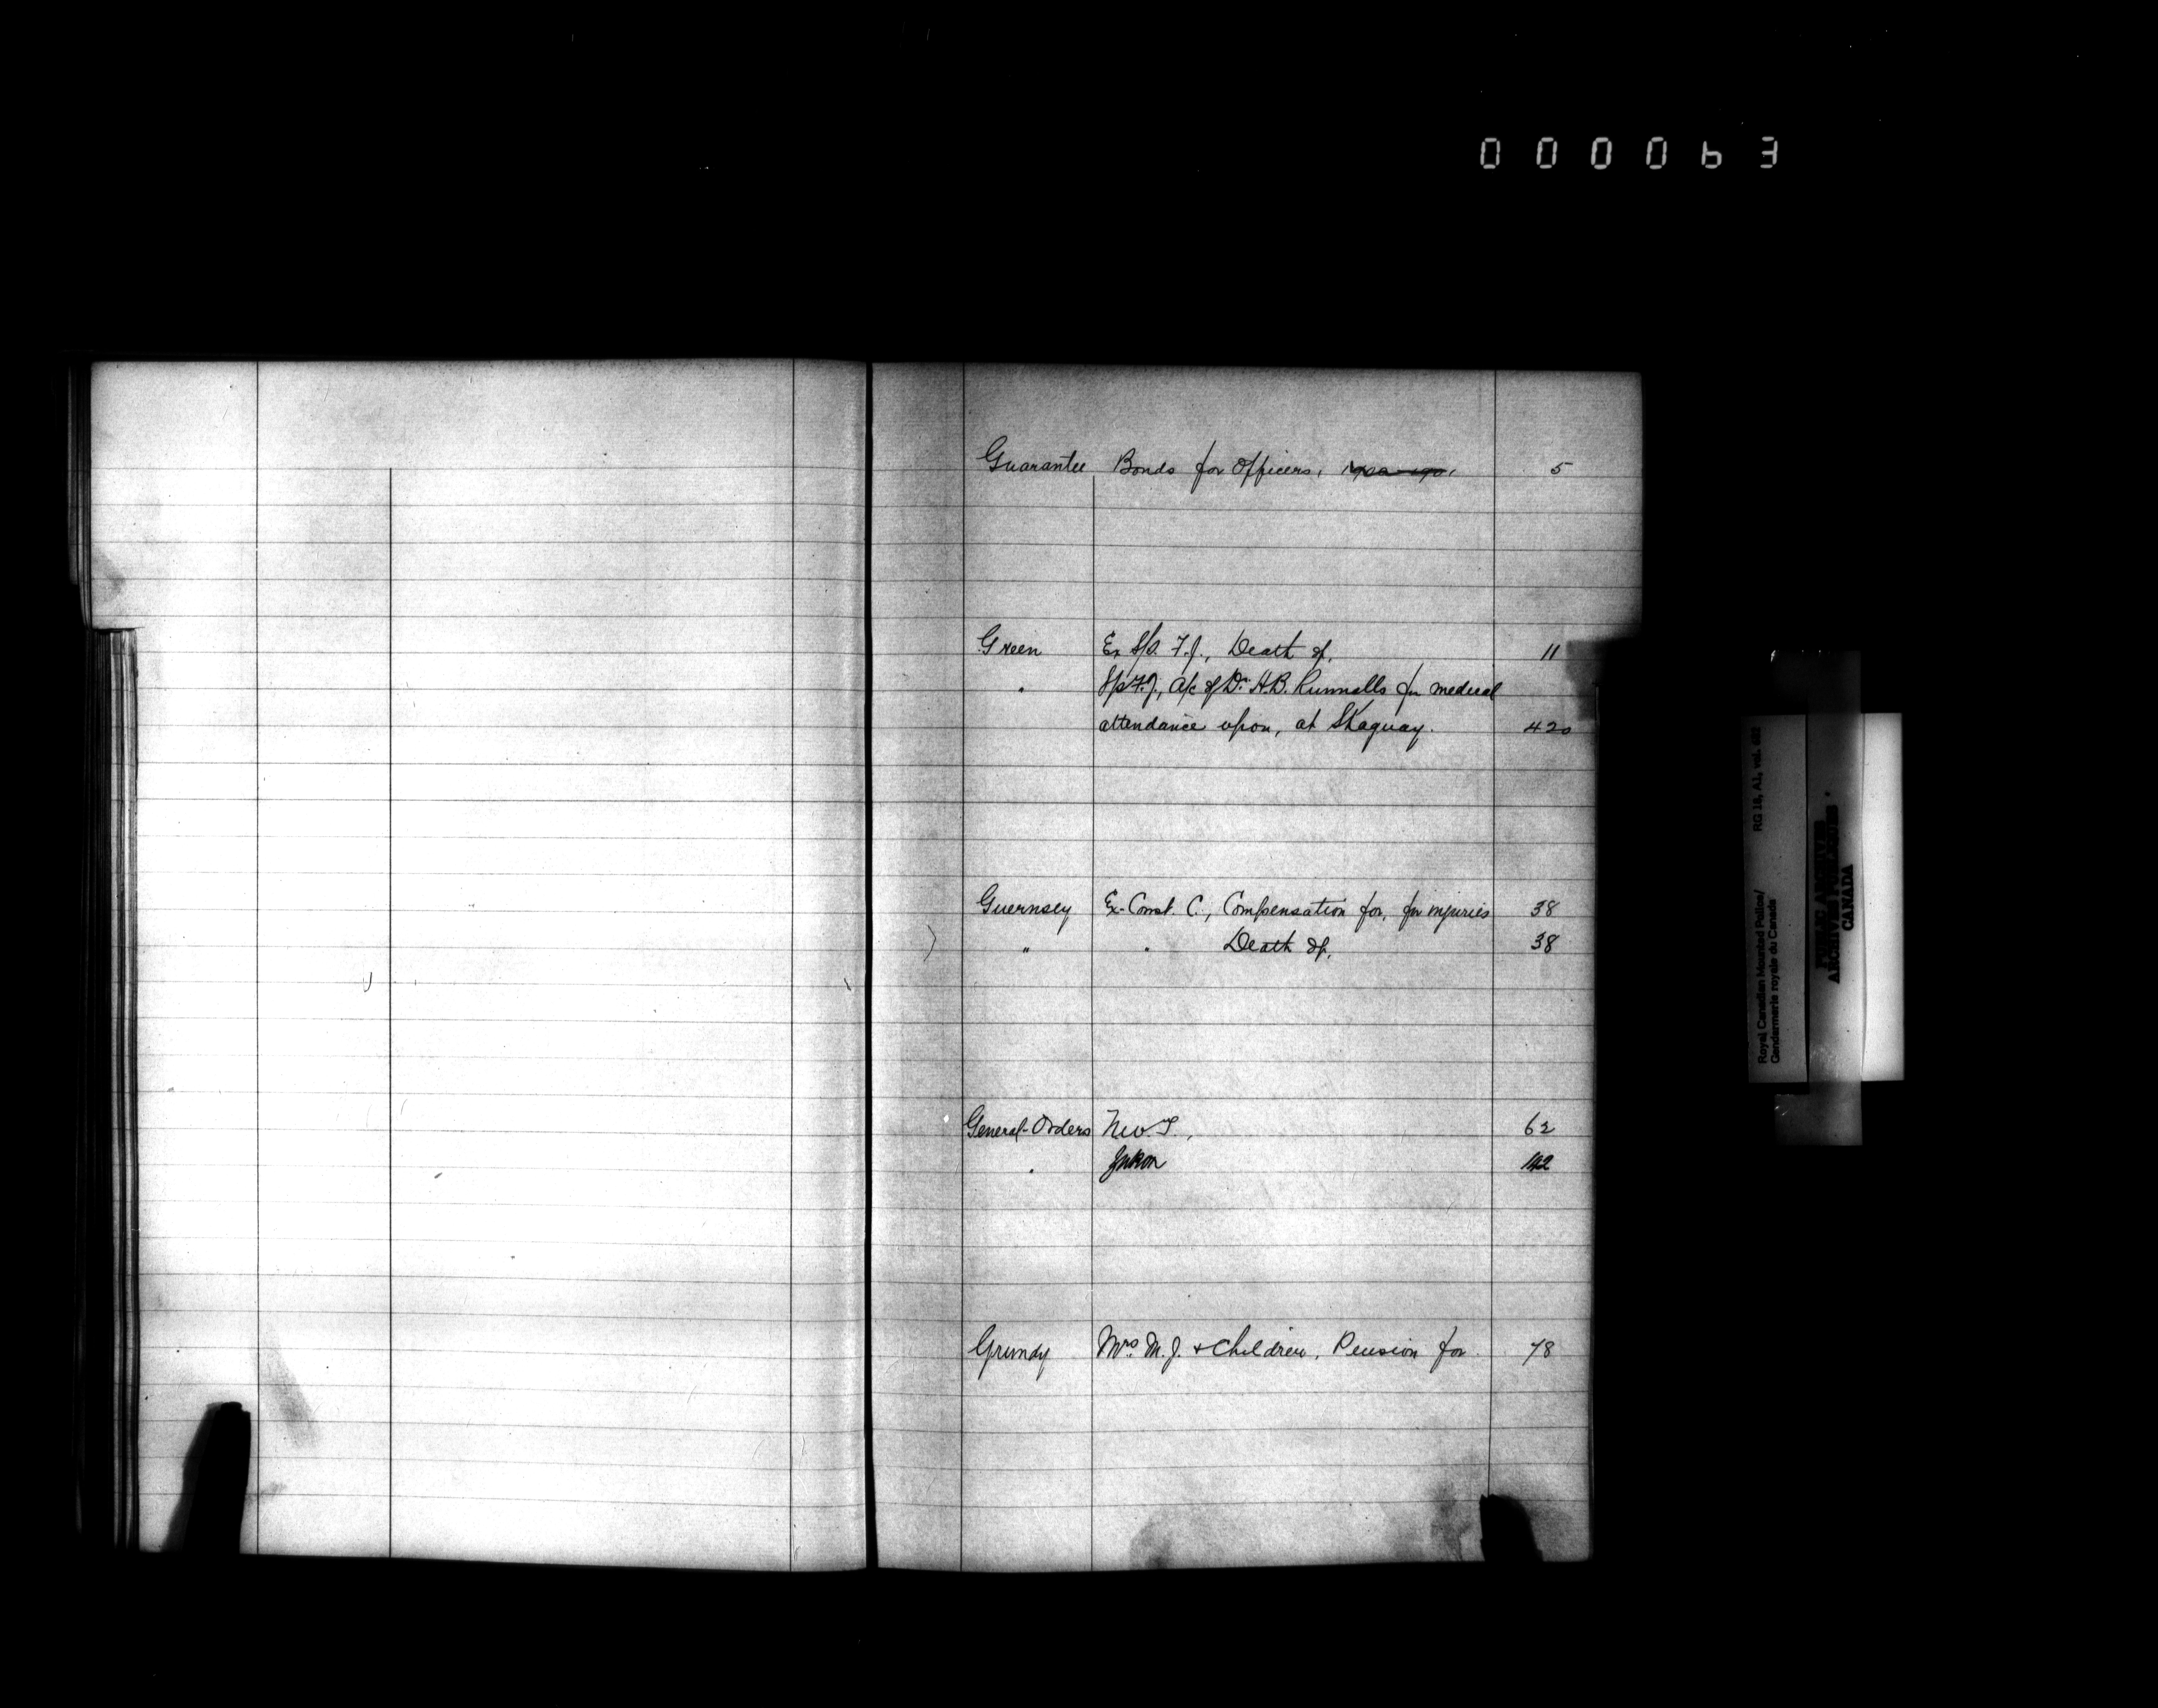 000063
Guarantee Bonds for Officers, 5
Green Ex S/S. F.J., Death of, 11
" S/S F.J., A/c of Dr. H.B. Runnalls for medical
attendance upon, at Skaguay. 420
Guernsey Ex-Const. C., Compensation for, for injuries 38
" " Death of, 38
General-Orders N.W.T., 62
" Yukon 142
Grundy Mrs. M.J. & Children, Pension for. 78
Royal Canadian Mounted Police/ RG 18, A1, vol.
Gendarmerie royale du Canada
PUBLIC ARCHIVES
ARCHIVES PUBLIQUES
CANADA